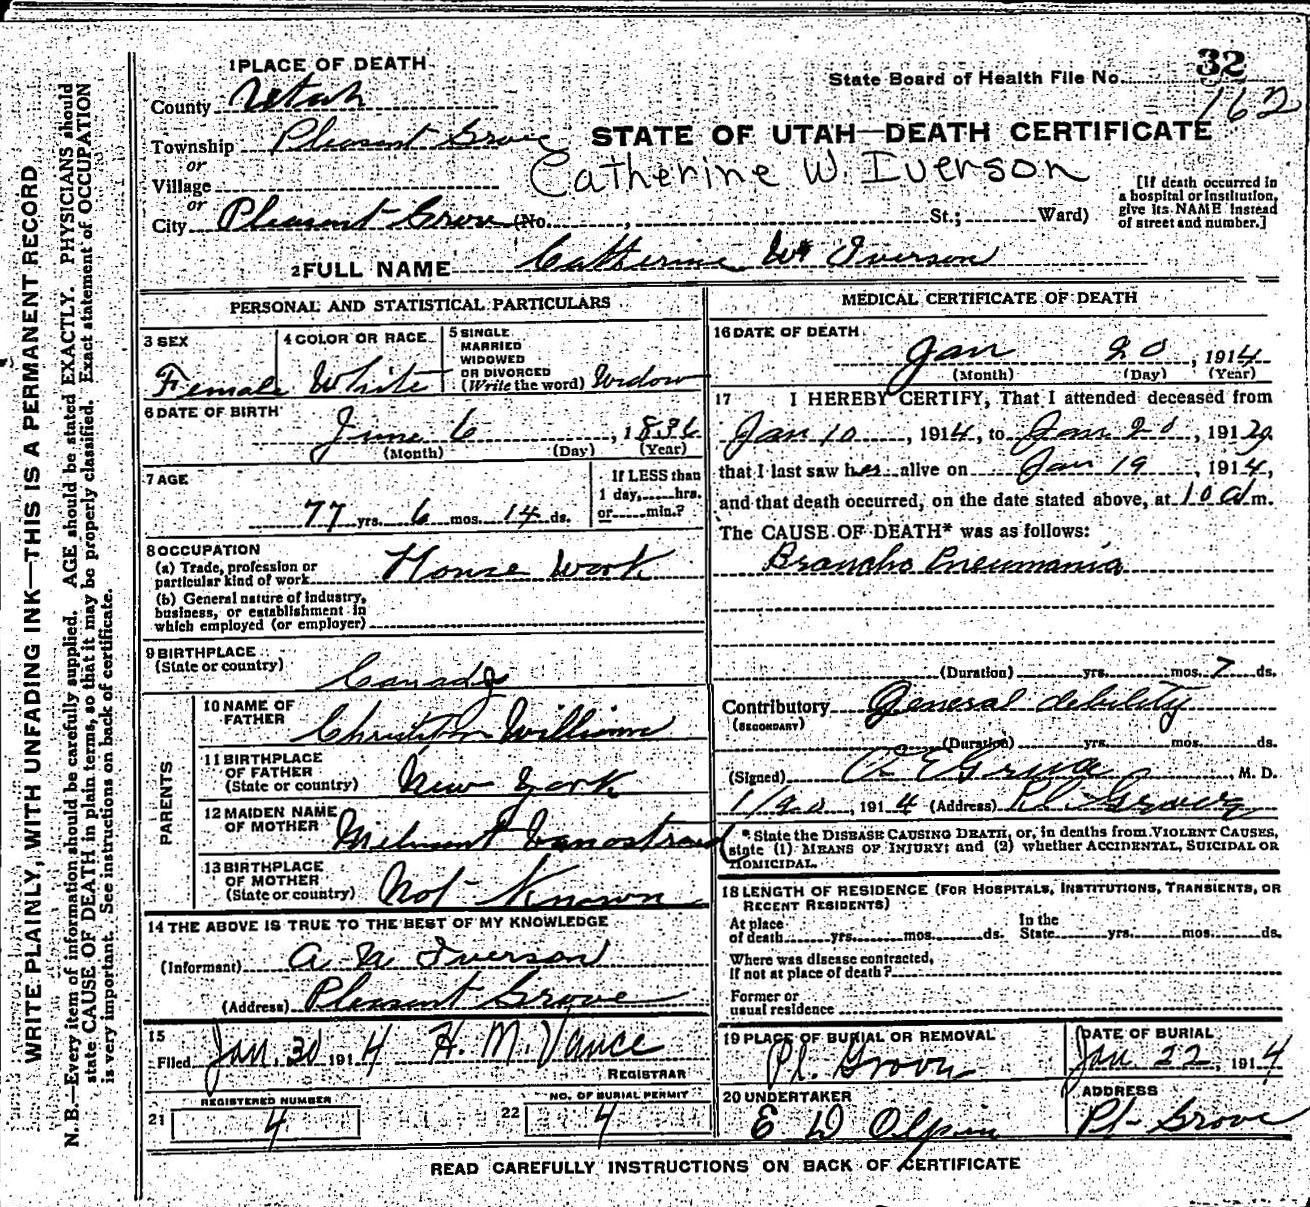 WRITE PLAINLY, WITH UNFADING INK—THIS IS A PERMANENT RECORD
N. B.—Every item of information should be carefully supplied. AGE should be stated EXACTLY. PHYSICIANS should
state CAUSE OF DEATH in plain terms, so that it may be properly classified. Exact statement of OCCUPATION
is very important. See instructions on back of certificate.
1 PLACE OF DEATH
State Board of Health File No. 32
162
County Utah
Township Pleasant Grove
STATE OF UTAH—DEATH CERTIFICATE
or
Village
Catherine W. Iverson
or
City Pleasant Grove (No. , St.; Ward)
[If death occurred in
a hospital or institution,
give its NAME instead
of street and number.]
2 FULL NAME Catherine W. Iverson
PERSONAL AND STATISTICAL PARTICULARS
3 SEX
Female
4 COLOR OR RACE
White
5 SINGLE
MARRIED
WIDOWED
OR DIVORCED
(Write the word) Widow
6 DATE OF BIRTH
June 6, 1836
(Month) (Day) (Year)
7 AGE
77 yrs. 6 mos. 14 ds.
If LESS than
1 day, hrs.
or min.?
8 OCCUPATION
(a) Trade, profession or
particular kind of work House Work
(b) General nature of industry,
business, or establishment in
which employed (or employer)
9 BIRTHPLACE
(State or country)
Canada
PARENTS
10 NAME OF
FATHER
Christian Williams
11 BIRTHPLACE
OF FATHER
(State or country) New York
12 MAIDEN NAME
OF MOTHER
13 BIRTHPLACE
OF MOTHER
(State or country) Not Known
14 THE ABOVE IS TRUE TO THE BEST OF MY KNOWLEDGE
(Informant) A M Iverson
(Address) Pleasant Grove
15
Filed Jan. 30 1914 H. M. Vance
REGISTRAR
REGISTERED NUMBER
21 4
NO. OF BURIAL PERMIT
22 4
MEDICAL CERTIFICATE OF DEATH
16 DATE OF DEATH
Jan 20, 1914
(Month) (Day) (Year)
17 I HEREBY CERTIFY, That I attended deceased from
Jan 10, 1914, to Jan 20, 191
that I last saw her alive on Jan 19, 1914,
and that death occurred, on the date stated above, at 10 a m.
The CAUSE OF DEATH* was as follows:
Broncho Pneumonia
(Duration) yrs. mos. 7 ds.
Contributory General debility
(SECONDARY)
(Duration) yrs. mos. ds.
(Signed) M. D.
1/20, 1914 (Address) Pl Grove
*State the DISEASE CAUSING DEATH, or, in deaths from VIOLENT CAUSES,
state (1) MEANS OF INJURY; and (2) whether ACCIDENTAL, SUICIDAL OR
HOMICIDAL.
18 LENGTH OF RESIDENCE (FOR HOSPITALS, INSTITUTIONS, TRANSIENTS, OR
RECENT RESIDENTS)
At place
of death yrs. mos. ds.
In the
State yrs. mos. ds.
Where was disease contracted,
if not at place of death?
Former or
usual residence
19 PLACE OF BURIAL OR REMOVAL
Pl. Grove
DATE OF BURIAL
Jan 22, 1914
20 UNDERTAKER
E D Olpin
ADDRESS
Pl- Grove
READ CAREFULLY INSTRUCTIONS ON BACK OF CERTIFICATE